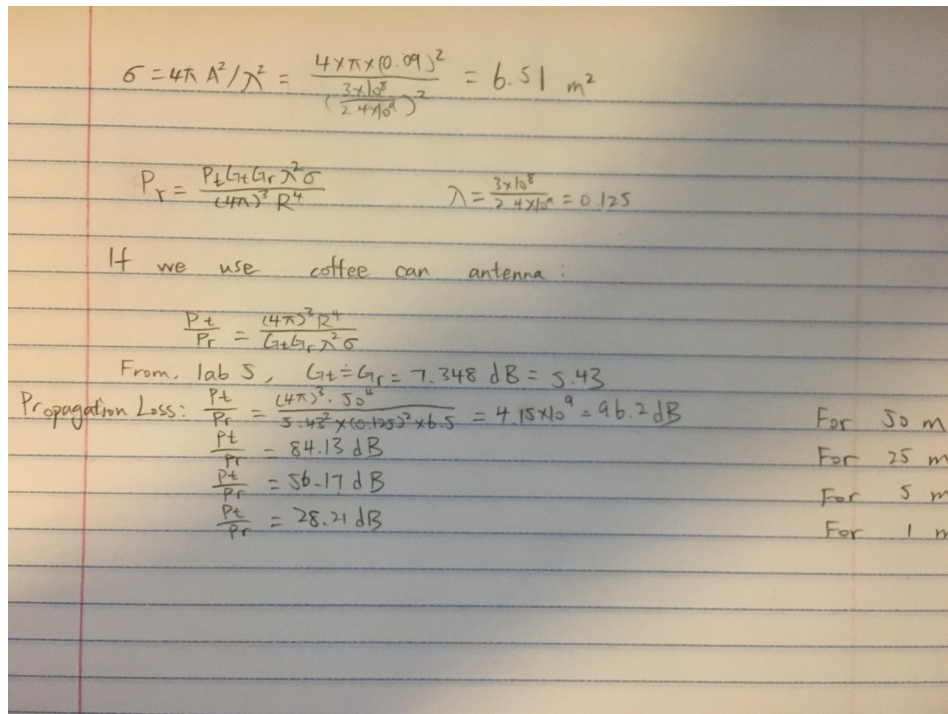 σ = 4π A²/λ² = 4×π×(0.09)² / (3×10⁸ / 2.4×10⁹)² = 6.51 m²
Pr = PtGtGrλ²σ / (4π)³ R⁴    λ = 3×10⁸ / 2.4×10⁹ = 0.125
If we use coffee can antenna :
Pt/Pr = (4π)³R⁴ / GtGrλ²σ
From. lab 5, Gt = Gr = 7.348 dB = 5.43
Propagation Loss: Pt/Pr = (4π)³·50⁴ / 5.43²×(0.125)²×6.5 = 4.15×10⁹ = 96.2 dB    For 50 m
Pt/Pr = 84.13 dB    For 25 m
Pt/Pr = 56.17 dB    For 5 m
Pt/Pr = 28.21 dB    For 1 m